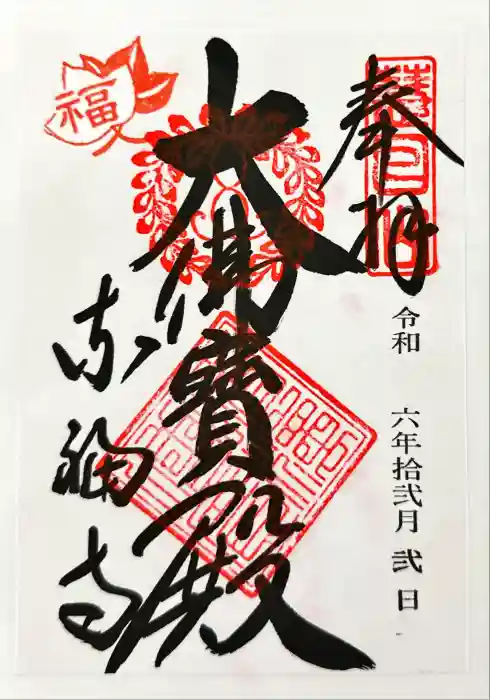 奉拝
令和 六年拾弐月 弐 日
大佛寳殿
福
東福寺